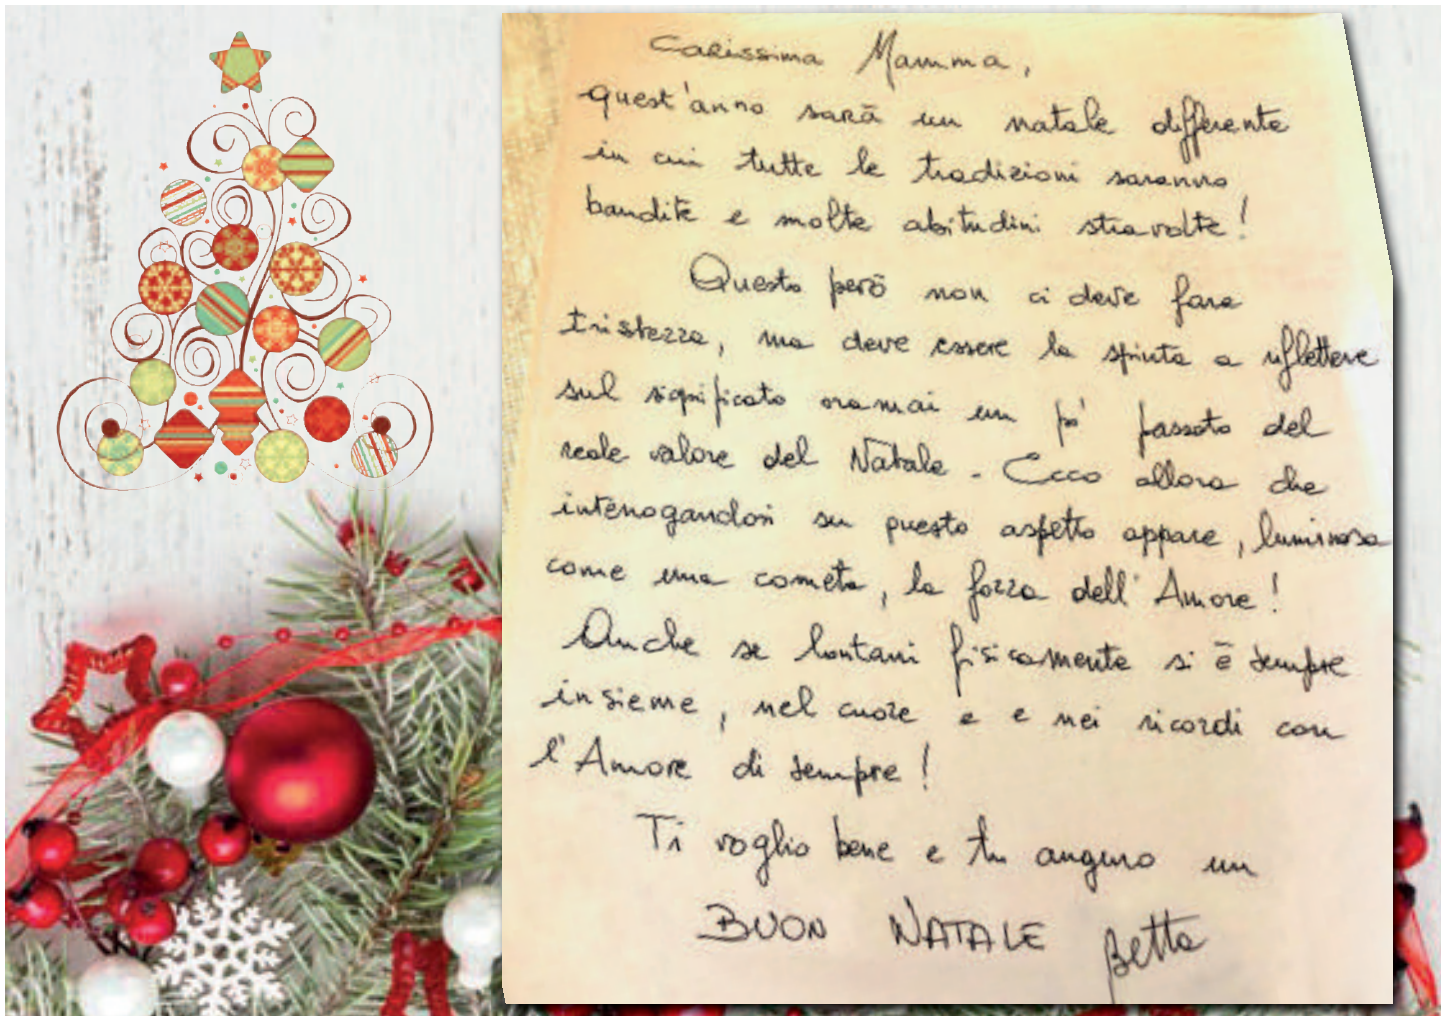 Carissima Mamma,
quest'anno sarà un natale differente
in cui tutte le tradizioni saranno
bandite e molte abitudini stravolte!
Questo però non ci deve fare
tristezza, ma deve essere la spinta a riflettere
sul significato oramai un po' passato del
reale valore del Natale. Ecco allora che
interrogandosi su questo aspetto appare, luminosa
come una cometa, la forza dell'Amore!
Anche se lontani fisicamente si è sempre
insieme, nel cuore e e nei ricordi con
l'Amore di sempre!
Ti voglio bene e ti auguro un
BUON NATALE Betta